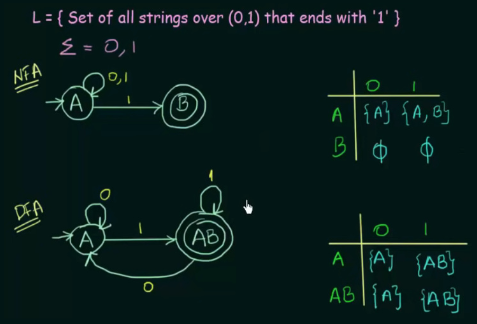 L = { Set of all strings over (0,1) that ends with '1' }
Σ = 0, 1
NFA
0,1
A
1
B
0 1
A {A} {A, B}
B ϕ ϕ
DFA
0
1
A
1
AB
0
0 1
A {A} {AB}
AB {A} {AB}